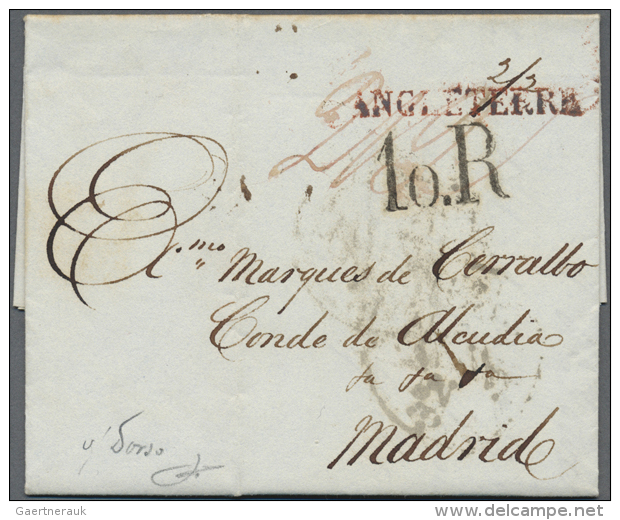 2/3
ANGLETERRE
10.R
Exmo
Marques de Cerralbo
Conde de Alcudia
Madrid
v/ Dorso
Gaertnerauk
delcampe.net